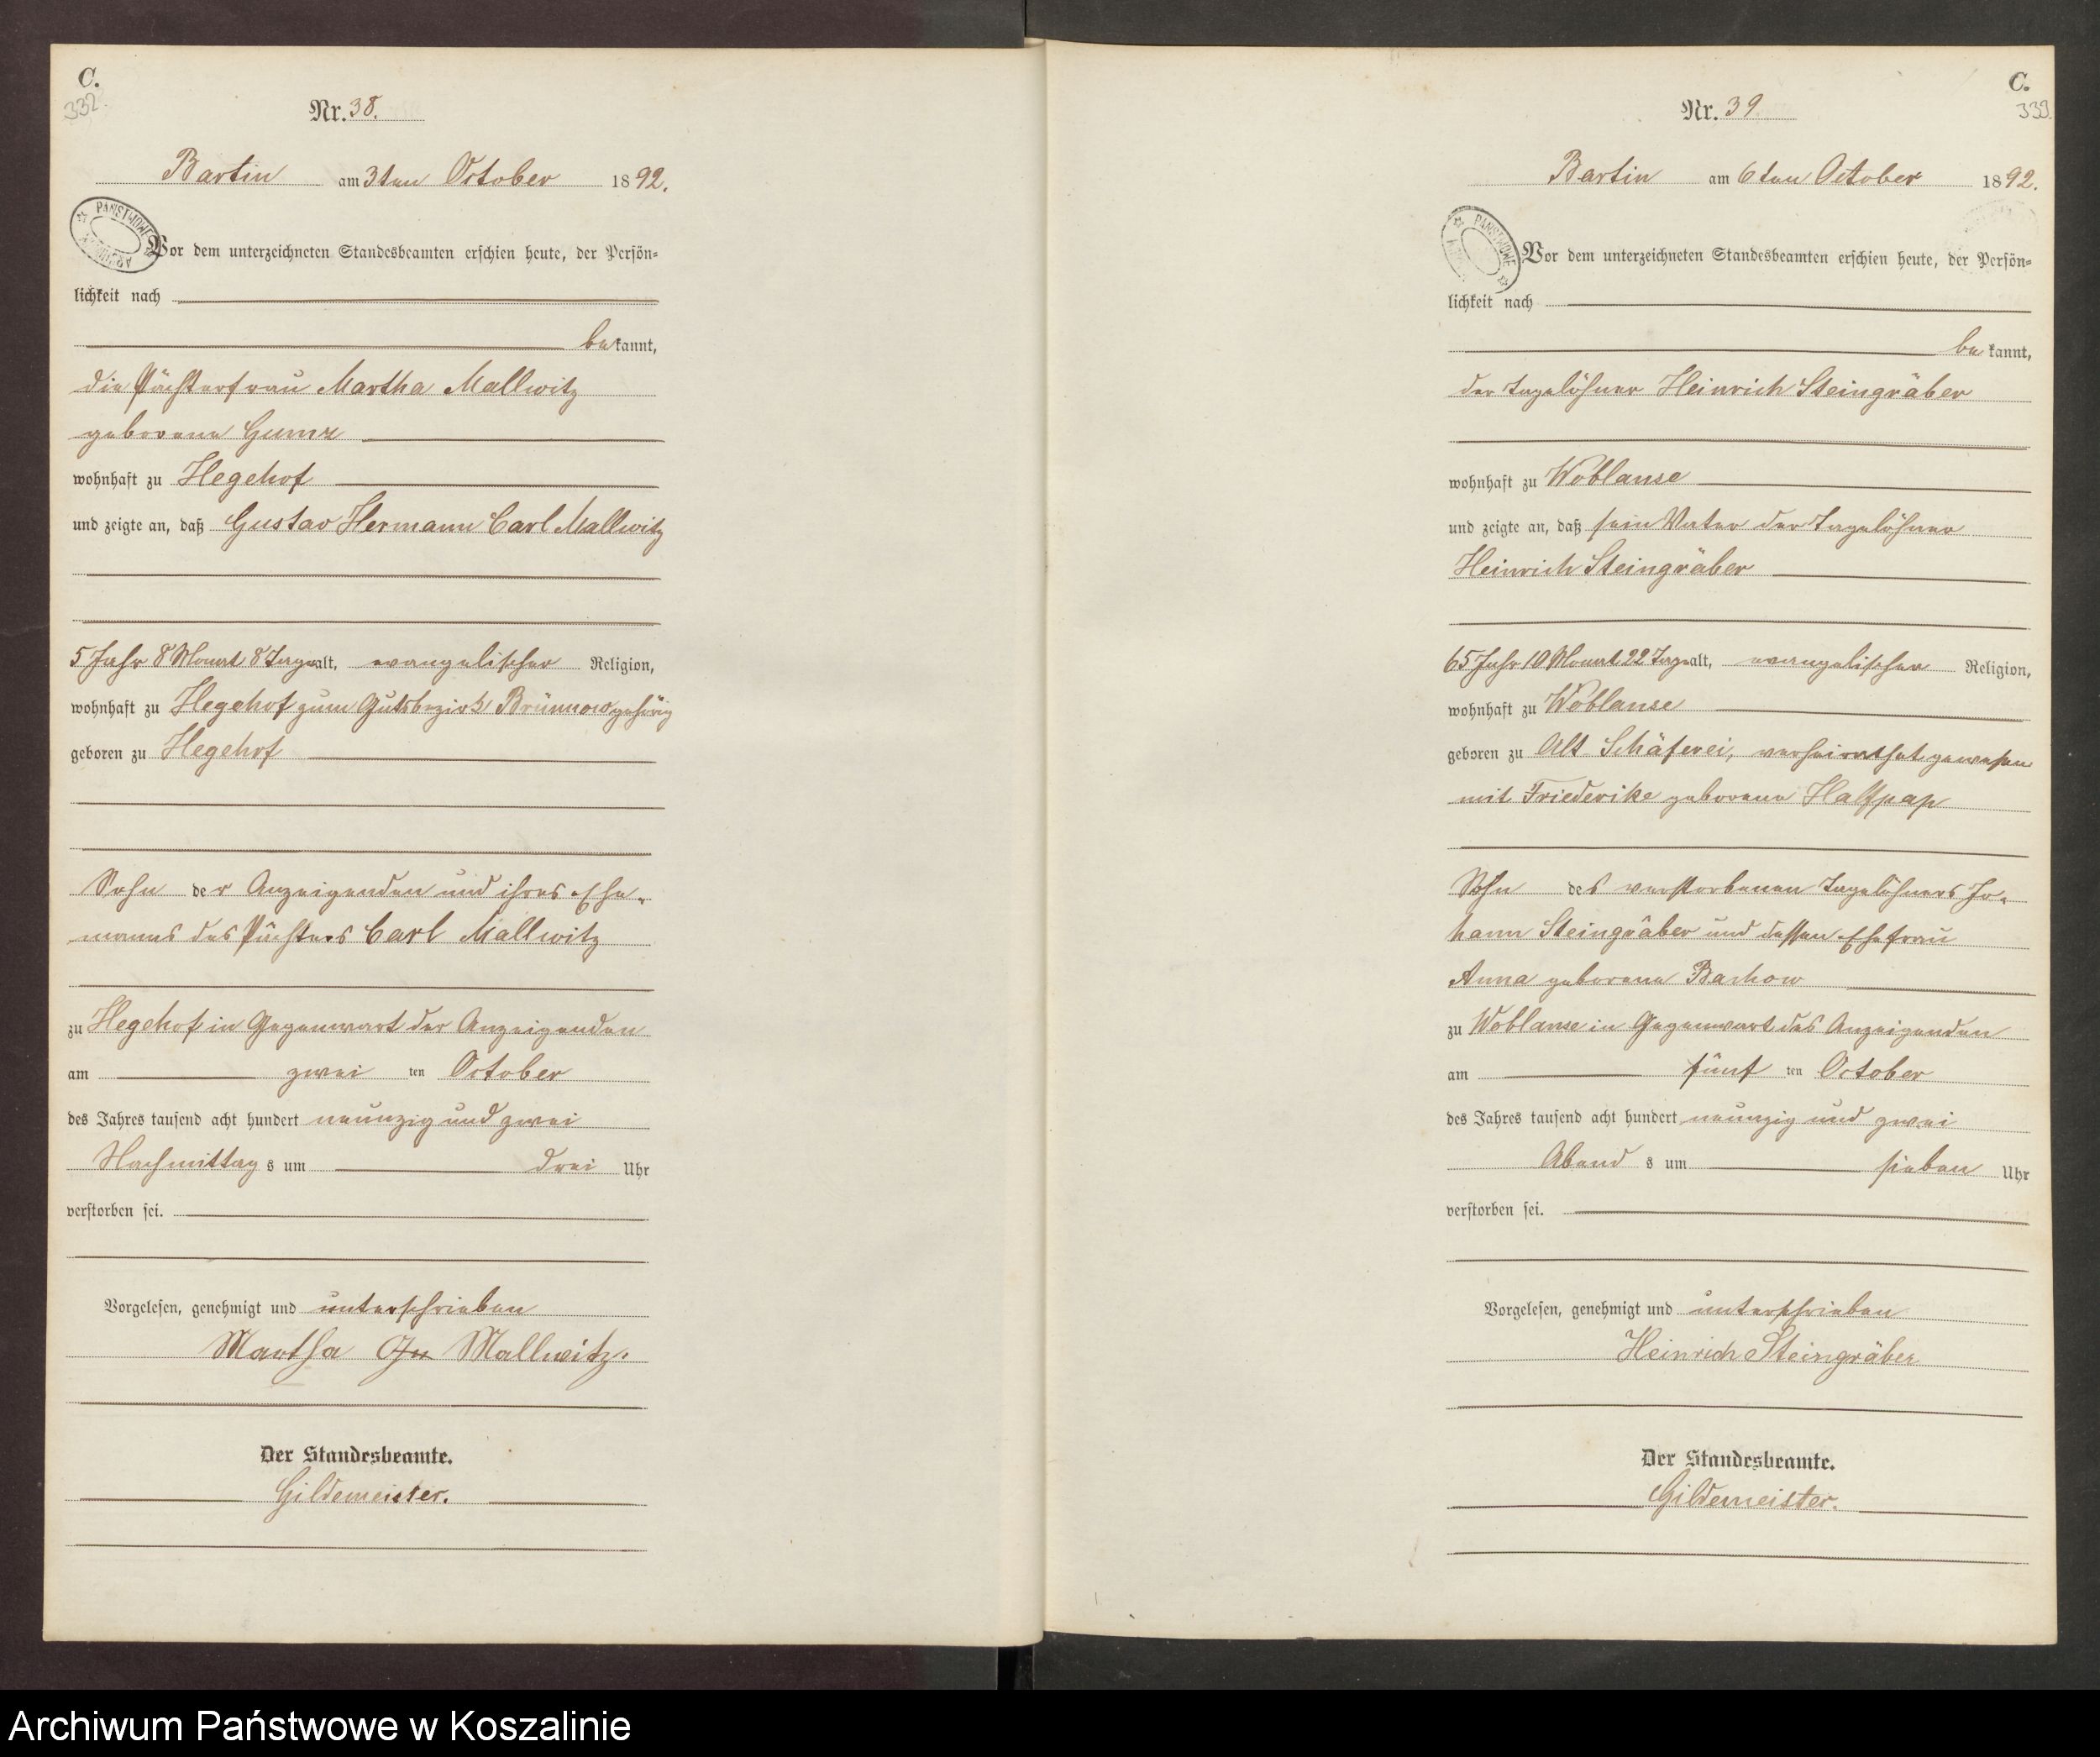 C.
332.
Nr. 38.
Bartin am 3ten October 1892.
PAŃSTWOWE
Vor dem unterzeichneten Standesbeamten erschien heute, der Persön-
lichkeit nach
bekannt,
die Pächterfrau Martha Mallwitz
geborene Gumz
wohnhaft zu Hegehof
und zeigte an, daß Gustav Hermann Carl Mallwitz
5 Jahr 8 Monat 8 Tage alt, evangelischer Religion,
wohnhaft zu Hegehof zum Gutsbezirk Brünnow gehörig
geboren zu Hegehof
Sohn der Anzeigenden und ihres Ehe-
manns des Pächters Carl Mallwitz
zu Hegehof in Gegenwart der Anzeigenden
am zwei ten October
des Jahres tausend acht hundert neunzig und zwei
Nachmittags um drei Uhr
verstorben sei.
Vorgelesen, genehmigt und unterschrieben
Martha Mallwitz.
Der Standesbeamte.
Gildemeister.
C.
333.
Nr. 39.
Bartin am 6ten October 1892.
PAŃSTWOWE
Vor dem unterzeichneten Standesbeamten erschien heute, der Persön-
lichkeit nach
bekannt,
der Tagelöhner Heinrich Steingräber
wohnhaft zu Woblanse
und zeigte an, daß sein Vater der Tagelöhner
Heinrich Steingräber
65 Jahr 10 Monat 22 Tage alt, evangelischer Religion,
wohnhaft zu Woblanse
geboren zu Alt Schäferei, verheirathet gewesen
mit Friederike geborene Halfpap
Sohn des verstorbenen Tagelöhners Jo-
hann Steingräber und dessen Ehefrau
Anna geborene Bachow
zu Woblanse in Gegenwart des Anzeigenden
am fünf ten October
des Jahres tausend acht hundert neunzig und zwei
Abends um sieben Uhr
verstorben sei.
Vorgelesen, genehmigt und unterschrieben
Heinrich Steingräber
Der Standesbeamte.
Gildemeister.
Archiwum Państwowe w Koszalinie